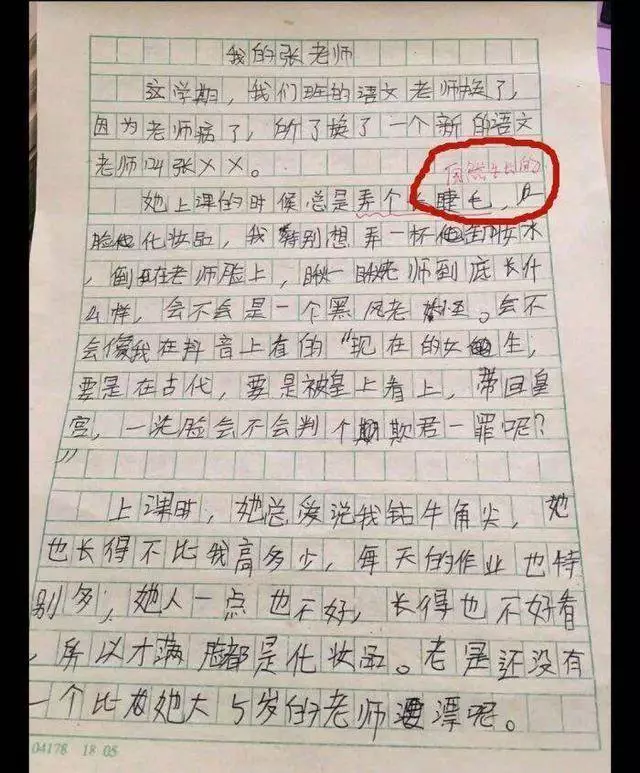 我的张老师
这学期，我们班的语文老师换了，
因为老师病了，所了换了一个新的语文
老师叫张××。
自然生长的
她上课的时候总是弄个长睫毛，一
脸化妆品，我特别想弄一杯卸妆水
，倒在老师脸上，瞅一瞅老师到底长什
么样，会不会是一个黑风老妖怪。会不
会像我在抖音上看的“现在的女生，
要是在古代，要是被皇上看上，带回皇
宫，一洗脸会不会判个期欺君一罪呢？
”
上课时，她总爱说我钻牛角尖，她
也长得不比我高多少，每天的作业也特
别多，她人一点也不好，长得也不好看
，所以才满脸都是化妆品。老是还没有
一个比她大5岁的老师漂呢。
04178 18 05